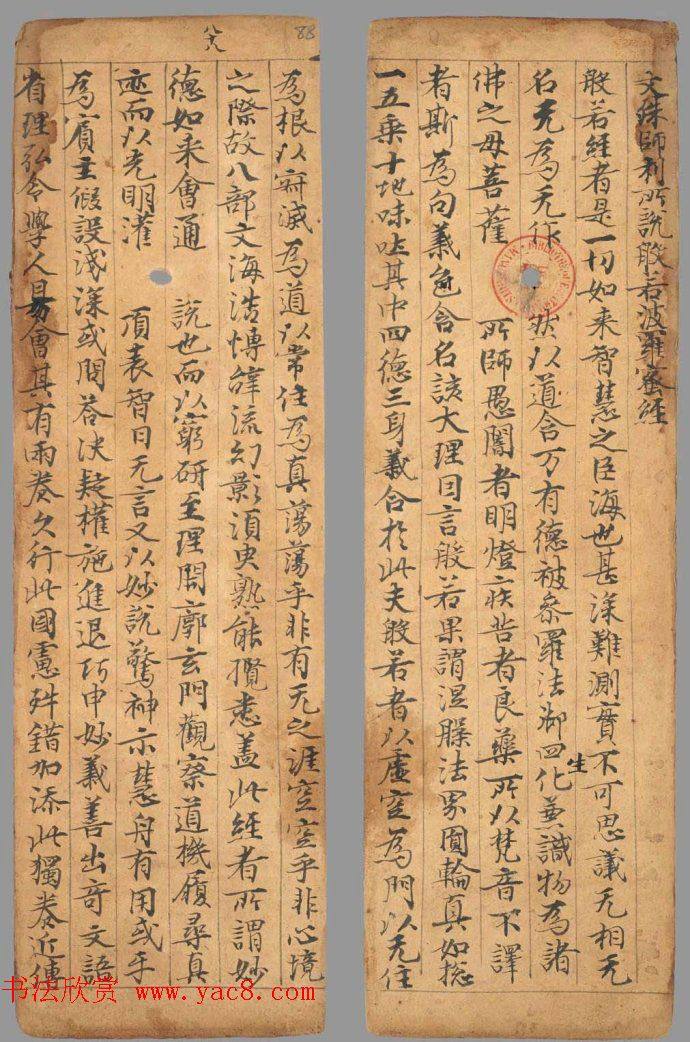 文殊師利所說般若波羅蜜經
般若經者是一切如来智慧之臣海也甚深難測實不可思議无相无
名无為无作 狀以道含万有德被叅羅法御四化兼識物為諸
生
佛之母菩薩 所師愚闇者明燈疾苦者良藥所以梵音不譯
者斯為向義包含名該大理目言般若果謂涅法界圓輪真如揔
一五乗十地味吐其中四德三身義合於此夫般若者以虛空為門以无住
為根以寂滅為道以常住為真蕩蕩乎非有无之涯空空乎非心境
之際故八部文海浩愽肆流幻影須臾熟能攬悉盖此経者所謂妙
德如来會通 說也而以窮研至理開廓玄門觀察道機履尋真
迹而以光明灌 頂表智日无言又以妙說驚神示慧舟有用或乎
為賓主假設淺深或問荅決疑權施進退巧申妙義善出奇文諳
省理弘令學人易會其有兩卷久行此國慮舛錯加添此獨卷近傳
八六
88
书法欣赏 www.yac8.com